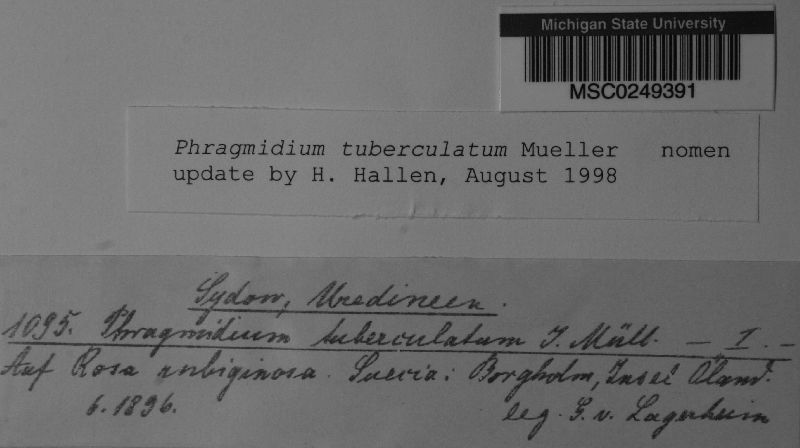 Michigan State University
MSC0249391
Phragmidium tuberculatum Mueller nomen
update by H. Hallen, August 1998
Sydow, Uredineen.
1095. Phragmidium tuberculatum J. Müll. — I. —
Auf Rosa rubiginosa. Suecia: Borgholm, Insel Öland.
6. 1896. leg. G. v. Lagerheim